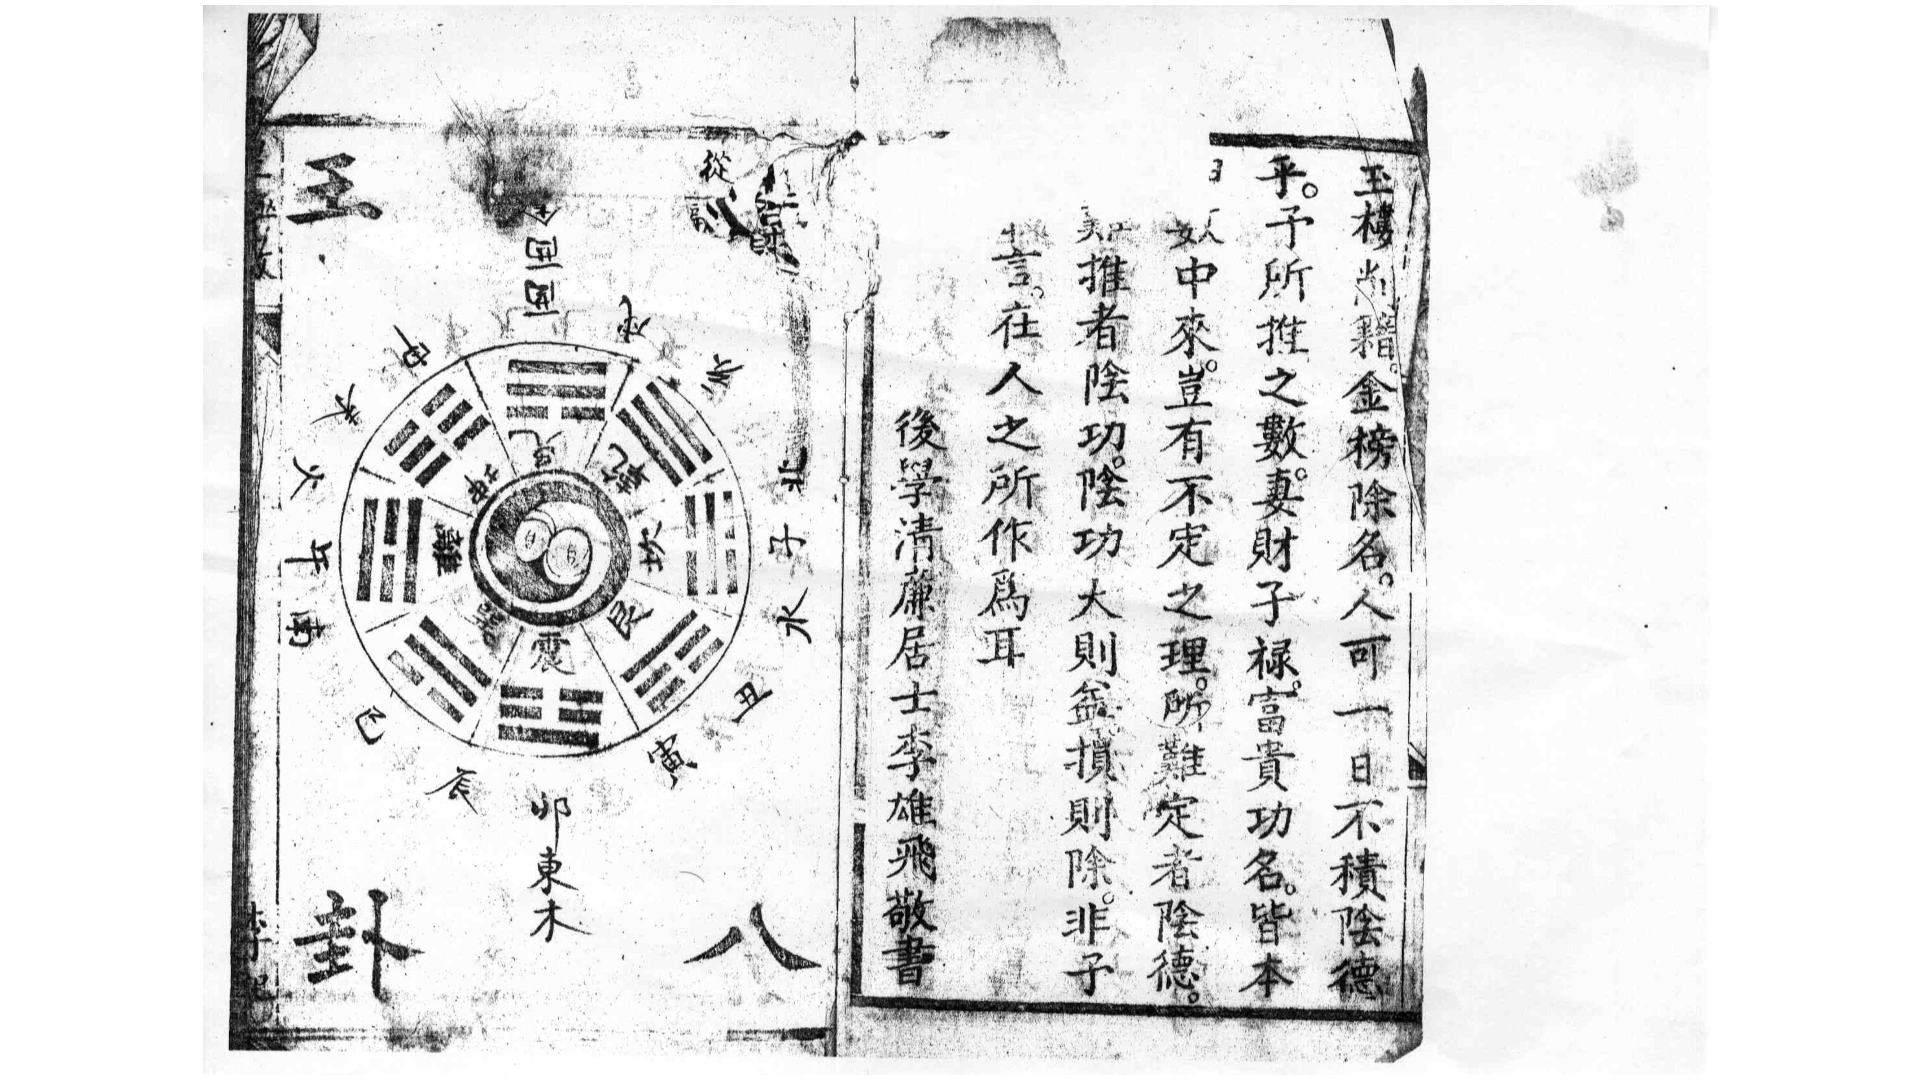 玉樓削籍。金榜除名。人可一日不積陰德
乎。予所推之數。妻財子祿。富貴功名。皆本
中來。豈有不定之理。所難定者陰德。
難推者陰功。陰功大則益。損則除。非予
言。在人之所作爲耳
後學清廉居士李雄飛敬書
從
王
八
卦
酉西金
戌
亥
北
子
水
丑
寅
卯東木
辰
巳
南
午
火
未
申
兌
乾
坎
艮
震
巽
離
坤